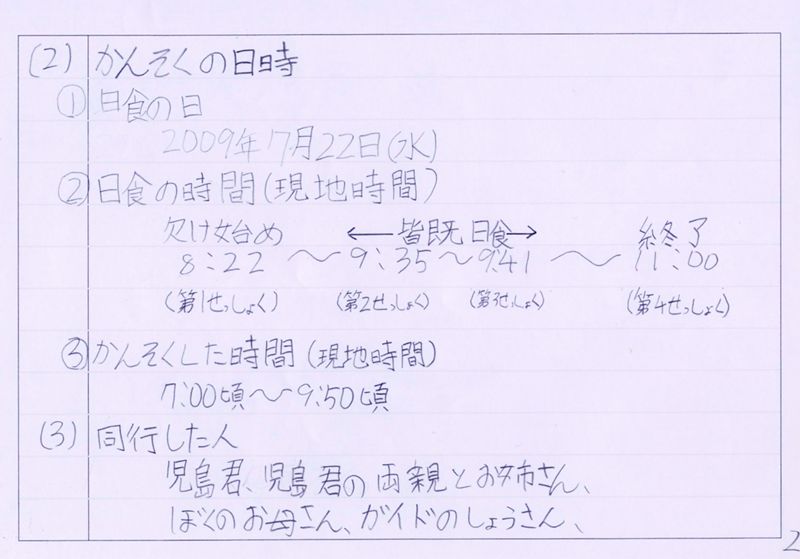 (2) かんそくの日時
① 日食の日
2009年7月22日(水)
② 日食の時間(現地時間)
欠け始め ←皆既日食→ 終了
8:22 〜 9:35〜9:41 〜 11:00
(第1せっしょく) (第2せっしょく) (第3せっしょく) (第4せっしょく)
③ かんそくした時間(現地時間)
7:00頃〜9:50頃
(3) 同行した人
児島君、児島君の両親とお姉さん、
ぼくのお母さん、ガイドのしょうさん、
2